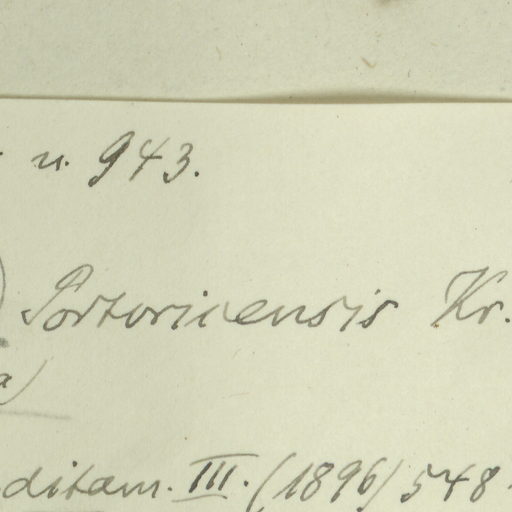 n. 943.
Portoricensis Kr.
a)
ditam. III. (1896) 548